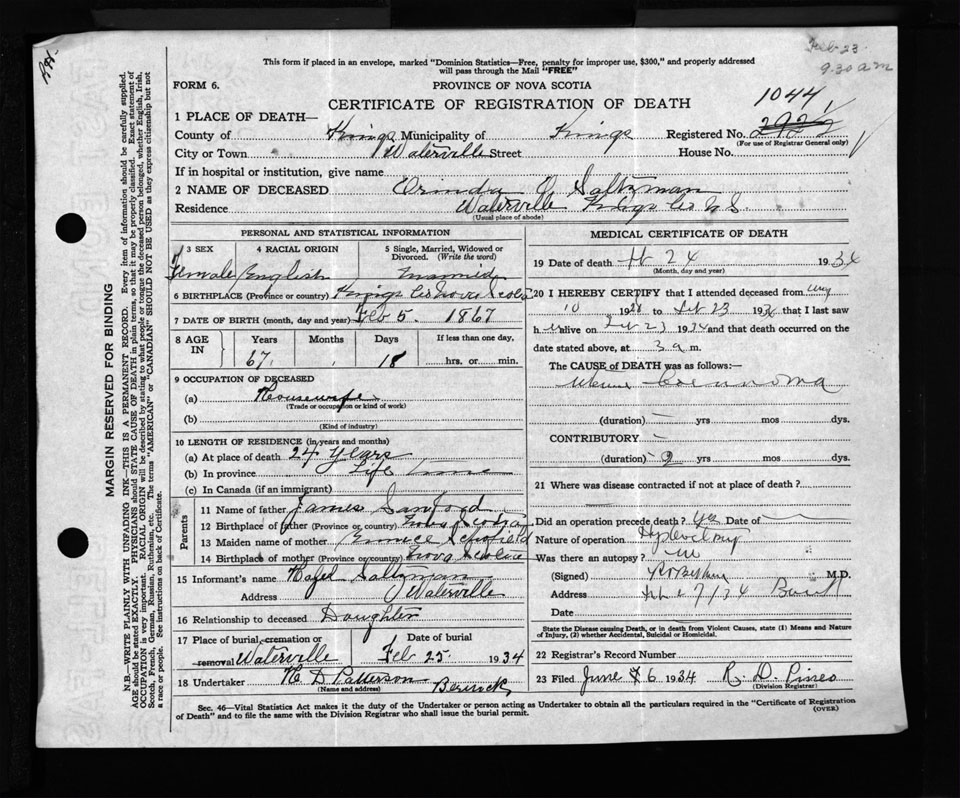 Feb 23
9.30 a m
This form if placed in an envelope, marked "Dominion Statistics—Free, penalty for improper use, $300," and properly addressed
will pass through the Mail "FREE"
FORM 6.
PROVINCE OF NOVA SCOTIA
CERTIFICATE OF REGISTRATION OF DEATH
1044
1 PLACE OF DEATH—
County of Kings Municipality of Kings Registered No.
(For use of Registrar General only)
City or Town Waterville Street House No.
If in hospital or institution, give name
2 NAME OF DECEASED Orinda O Saltzman
Residence Waterville Kings Co N S.
(Usual place of abode)
PERSONAL AND STATISTICAL INFORMATION
3 SEX 4 RACIAL ORIGIN 5 Single, Married, Widowed or Divorced. (Write the word)
Female English
6 BIRTHPLACE (Province or country) Kings Co Nova Scotia
7 DATE OF BIRTH (month, day and year) Feb 5. 1867
8 AGE IN Years Months Days If less than one day,
67 18 hrs. or min.
9 OCCUPATION OF DECEASED
(a) Housewife
(Trade or occupation or kind of work)
(b)
(Kind of industry)
10 LENGTH OF RESIDENCE (in years and months)
(a) At place of death 24 years
(b) In province Life time
(c) In Canada (if an immigrant)
Parents
11 Name of father James Sanford
12 Birthplace of father (Province or country) Nova Scotia
13 Maiden name of mother Eunice Schofield
14 Birthplace of mother (Province or country) Nova Scotia
15 Informant's name Hazel Saltzman
Address Waterville
16 Relationship to deceased Daughter
17 Place of burial, cremation or removal Waterville Date of burial Feb 25 1934
18 Undertaker H D Patterson Berwick
(Name and address)
MEDICAL CERTIFICATE OF DEATH
19 Date of death 24 1934
(Month, day and year)
20 I HEREBY CERTIFY that I attended deceased from Aug
10 1928 to Feb 23 1934 that I last saw
h er alive on Feb 23 1934 and that death occurred on
date stated above, at 3 a m.
The CAUSE of DEATH was as follows:
(duration) yrs mos dys.
CONTRIBUTORY
(duration) 2 yrs mos dys.
21 Where was disease contracted if not at place of death?
Did an operation precede death? yes Date of
Nature of operation
Was there an autopsy?
(Signed) M.D.
Address
Date
State the Disease causing Death, or in death from Violent Causes, state (1) Means and Nature
of Injury, (2) whether Accidental, Suicidal or Homicidal.
22 Registrar's Record Number
23 Filed June 6 1934 R. D. Pineo
(Division Registrar)
Sec. 46—Vital Statistics Act makes it the duty of the Undertaker or person acting as Undertaker to obtain all the particulars required in the "Certificate of Registration
of Death" and to file the same with the Division Registrar who shall issue the burial permit.
(OVER)
MARGIN RESERVED FOR BINDING
N.B.—WRITE PLAINLY WITH UNFADING INK—THIS IS A PERMANENT RECORD. Every item of information should be carefully supplied.
AGE should be stated EXACTLY. PHYSICIANS should STATE CAUSE OF DEATH in plain terms, so that it may be properly classified. Exact statement of
OCCUPATION is very important. RACIAL ORIGIN will be described by stating to what people or tongue the deceased person belonged, whether English, Irish,
Scotch, French, German, Russian, Ruthenian, etc. The terms "AMERICAN" or "CANADIAN" SHOULD NOT BE USED as they express citizenship but not
a race or people. See instructions on back of Certificate.